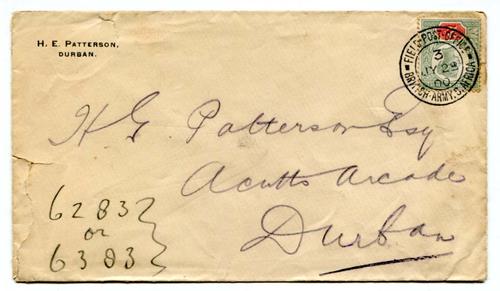 H. E. PATTERSON,
DURBAN.
FIELD-POST-OFFICE
3
JY 28
00
BRITISH-ARMY.S.AFRICA
H G Patterson Esq
Acutts Arcade
Durban
62832
or
6303